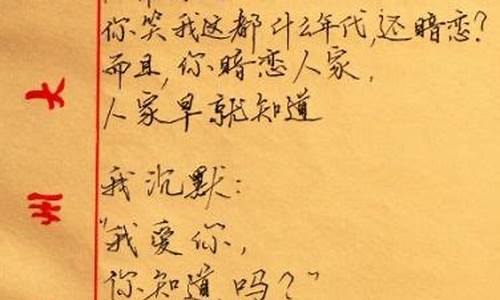 你笑我这都什么年代,还暗恋?
而且,你暗恋人家,
人家早就知道
我沉默:
"我爱你,
你知道吗?"
大
州